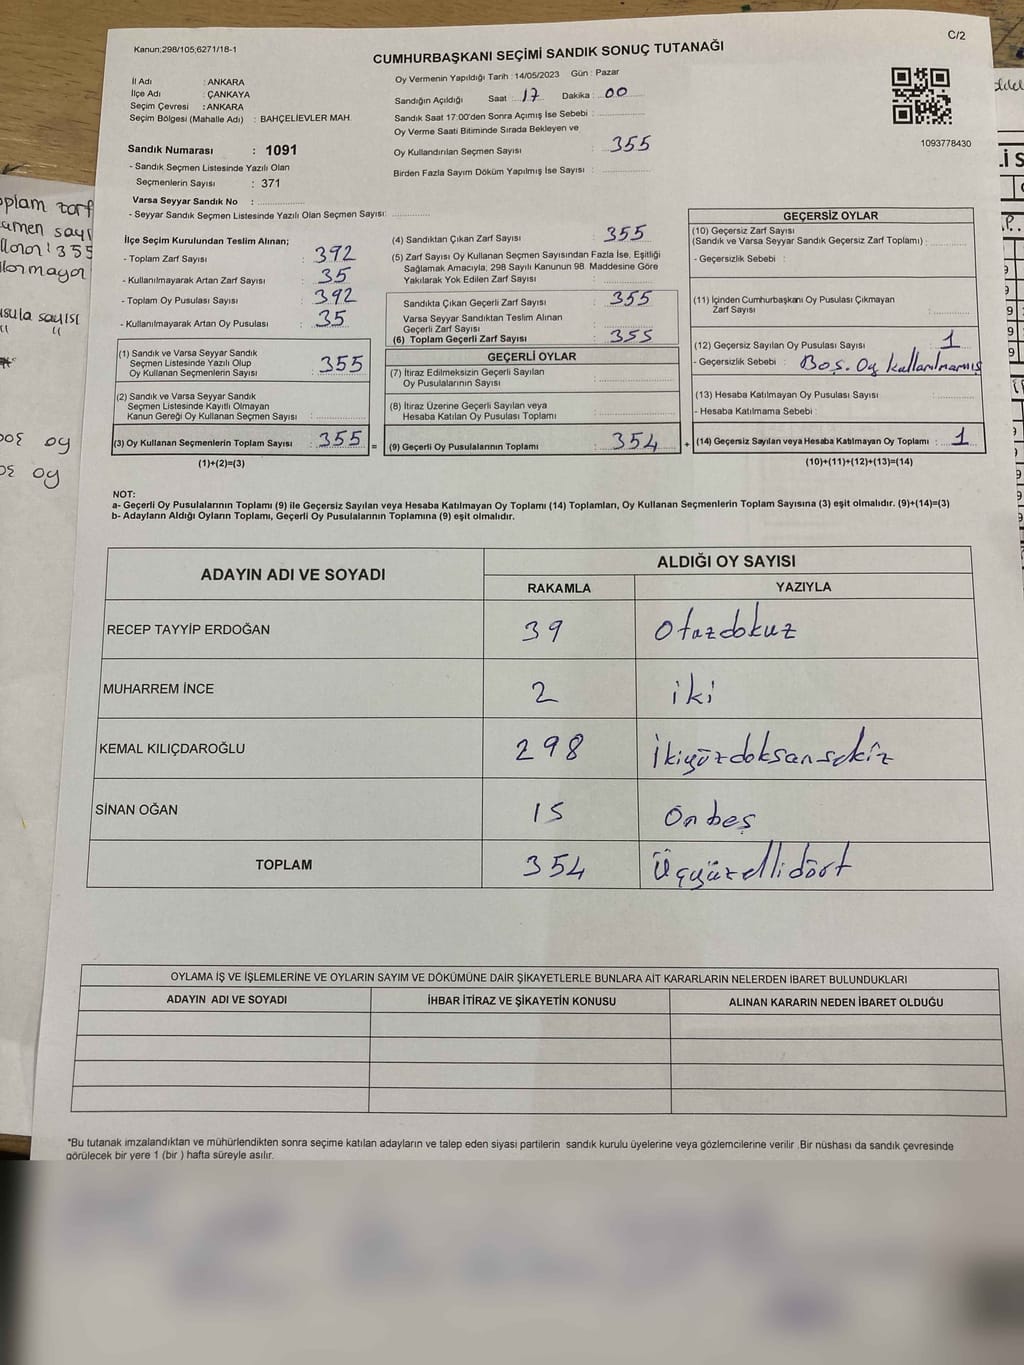 Kanun;298/105;6271/18-1
C/2
CUMHURBAŞKANI SEÇİMİ SANDIK SONUÇ TUTANAĞI
İl Adı : ANKARA
İlçe Adı : ÇANKAYA
Seçim Çevresi : ANKARA
Seçim Bölgesi (Mahalle Adı) : BAHÇELİEVLER MAH.
Sandık Numarası : 1091
- Sandık Seçmen Listesinde Yazılı Olan
Seçmenlerin Sayısı : 371
Varsa Seyyar Sandık No :
- Seyyar Sandık Seçmen Listesinde Yazılı Olan Seçmen Sayısı:
Oy Vermenin Yapıldığı Tarih : 14/05/2023 Gün : Pazar
Sandığın Açıldığı Saat : 17 Dakika : 00
Sandık Saat 17:00'den Sonra Açımış İse Sebebi :
Oy Verme Saati Bitiminde Sırada Bekleyen ve
Oy Kullandırılan Seçmen Sayısı : 355
Birden Fazla Sayım Döküm Yapılmış İse Sayısı :
1093778430
İlçe Seçim Kurulundan Teslim Alınan;
- Toplam Zarf Sayısı : 392
- Kullanılmayarak Artan Zarf Sayısı : 35
- Toplam Oy Pusulası Sayısı : 392
- Kullanılmayarak Artan Oy Pusulası : 35
(1) Sandık ve Varsa Seyyar Sandık
Seçmen Listesinde Yazılı Olup
Oy Kullanan Seçmenlerin Sayısı : 355
(2) Sandık ve Varsa Seyyar Sandık
Seçmen Listesinde Kayıtlı Olmayan
Kanun Gereği Oy Kullanan Seçmen Sayısı :
(3) Oy Kullanan Seçmenlerin Toplam Sayısı : 355 =
(1)+(2)=(3)
(4) Sandıktan Çıkan Zarf Sayısı : 355
(5) Zarf Sayısı Oy Kullanan Seçmen Sayısından Fazla İse, Eşitliği
Sağlamak Amacıyla, 298 Sayılı Kanunun 98. Maddesine Göre
Yakılarak Yok Edilen Zarf Sayısı :
Sandıkta Çıkan Geçerli Zarf Sayısı : 355
Varsa Seyyar Sandıktan Teslim Alınan
Geçerli Zarf Sayısı :
(6) Toplam Geçerli Zarf Sayısı : 355
GEÇERLİ OYLAR
(7) İtiraz Edilmeksizin Geçerli Sayılan
Oy Pusulalarının Sayısı :
(8) İtiraz Üzerine Geçerli Sayılan veya
Hesaba Katılan Oy Pusulası Toplamı :
(9) Geçerli Oy Pusulalarının Toplamı : 354 +
GEÇERSİZ OYLAR
(10) Geçersiz Zarf Sayısı
(Sandık ve Varsa Seyyar Sandık Geçersiz Zarf Toplamı) :
- Geçersizlik Sebebi :
(11) İçinden Cumhurbaşkanı Oy Pusulası Çıkmayan
Zarf Sayısı :
(12) Geçersiz Sayılan Oy Pusulası Sayısı : 1
- Geçersizlik Sebebi : Boş. Oy kullanılmamış
(13) Hesaba Katılmayan Oy Pusulası Sayısı :
- Hesaba Katılmama Sebebi :
(14) Geçersiz Sayılan veya Hesaba Katılmayan Oy Toplamı : 1
(10)+(11)+(12)+(13)=(14)
NOT:
a- Geçerli Oy Pusulalarının Toplamı (9) ile Geçersiz Sayılan veya Hesaba Katılmayan Oy Toplamı (14) Toplamları, Oy Kullanan Seçmenlerin Toplam Sayısına (3) eşit olmalıdır. (9)+(14)=(3)
b- Adayların Aldığı Oyların Toplamı, Geçerli Oy Pusulalarının Toplamına (9) eşit olmalıdır.
ADAYIN ADI VE SOYADI ALDIĞI OY SAYISI
RAKAMLA YAZIYLA
RECEP TAYYİP ERDOĞAN 39 Otuzdokuz
MUHARREM İNCE 2 iki
KEMAL KILIÇDAROĞLU 298 İkiyüzdoksansekiz
SİNAN OĞAN 15 Onbeş
TOPLAM 354 Üçyüzellidört
OYLAMA İŞ VE İŞLEMLERİNE VE OYLARIN SAYIM VE DÖKÜMÜNE DAİR ŞİKAYETLERLE BUNLARA AİT KARARLARIN NELERDEN İBARET BULUNDUKLARI
ADAYIN ADI VE SOYADI İHBAR İTİRAZ VE ŞİKAYETİN KONUSU ALINAN KARARIN NEDEN İBARET OLDUĞU
*Bu tutanak imzalandıktan ve mühürlendikten sonra seçime katılan adayların ve talep eden siyasi partilerin sandık kurulu üyelerine veya gözlemcilerine verilir .Bir nüshası da sandık çevresinde
görülecek bir yere 1 (bir ) hafta süreyle asılır.